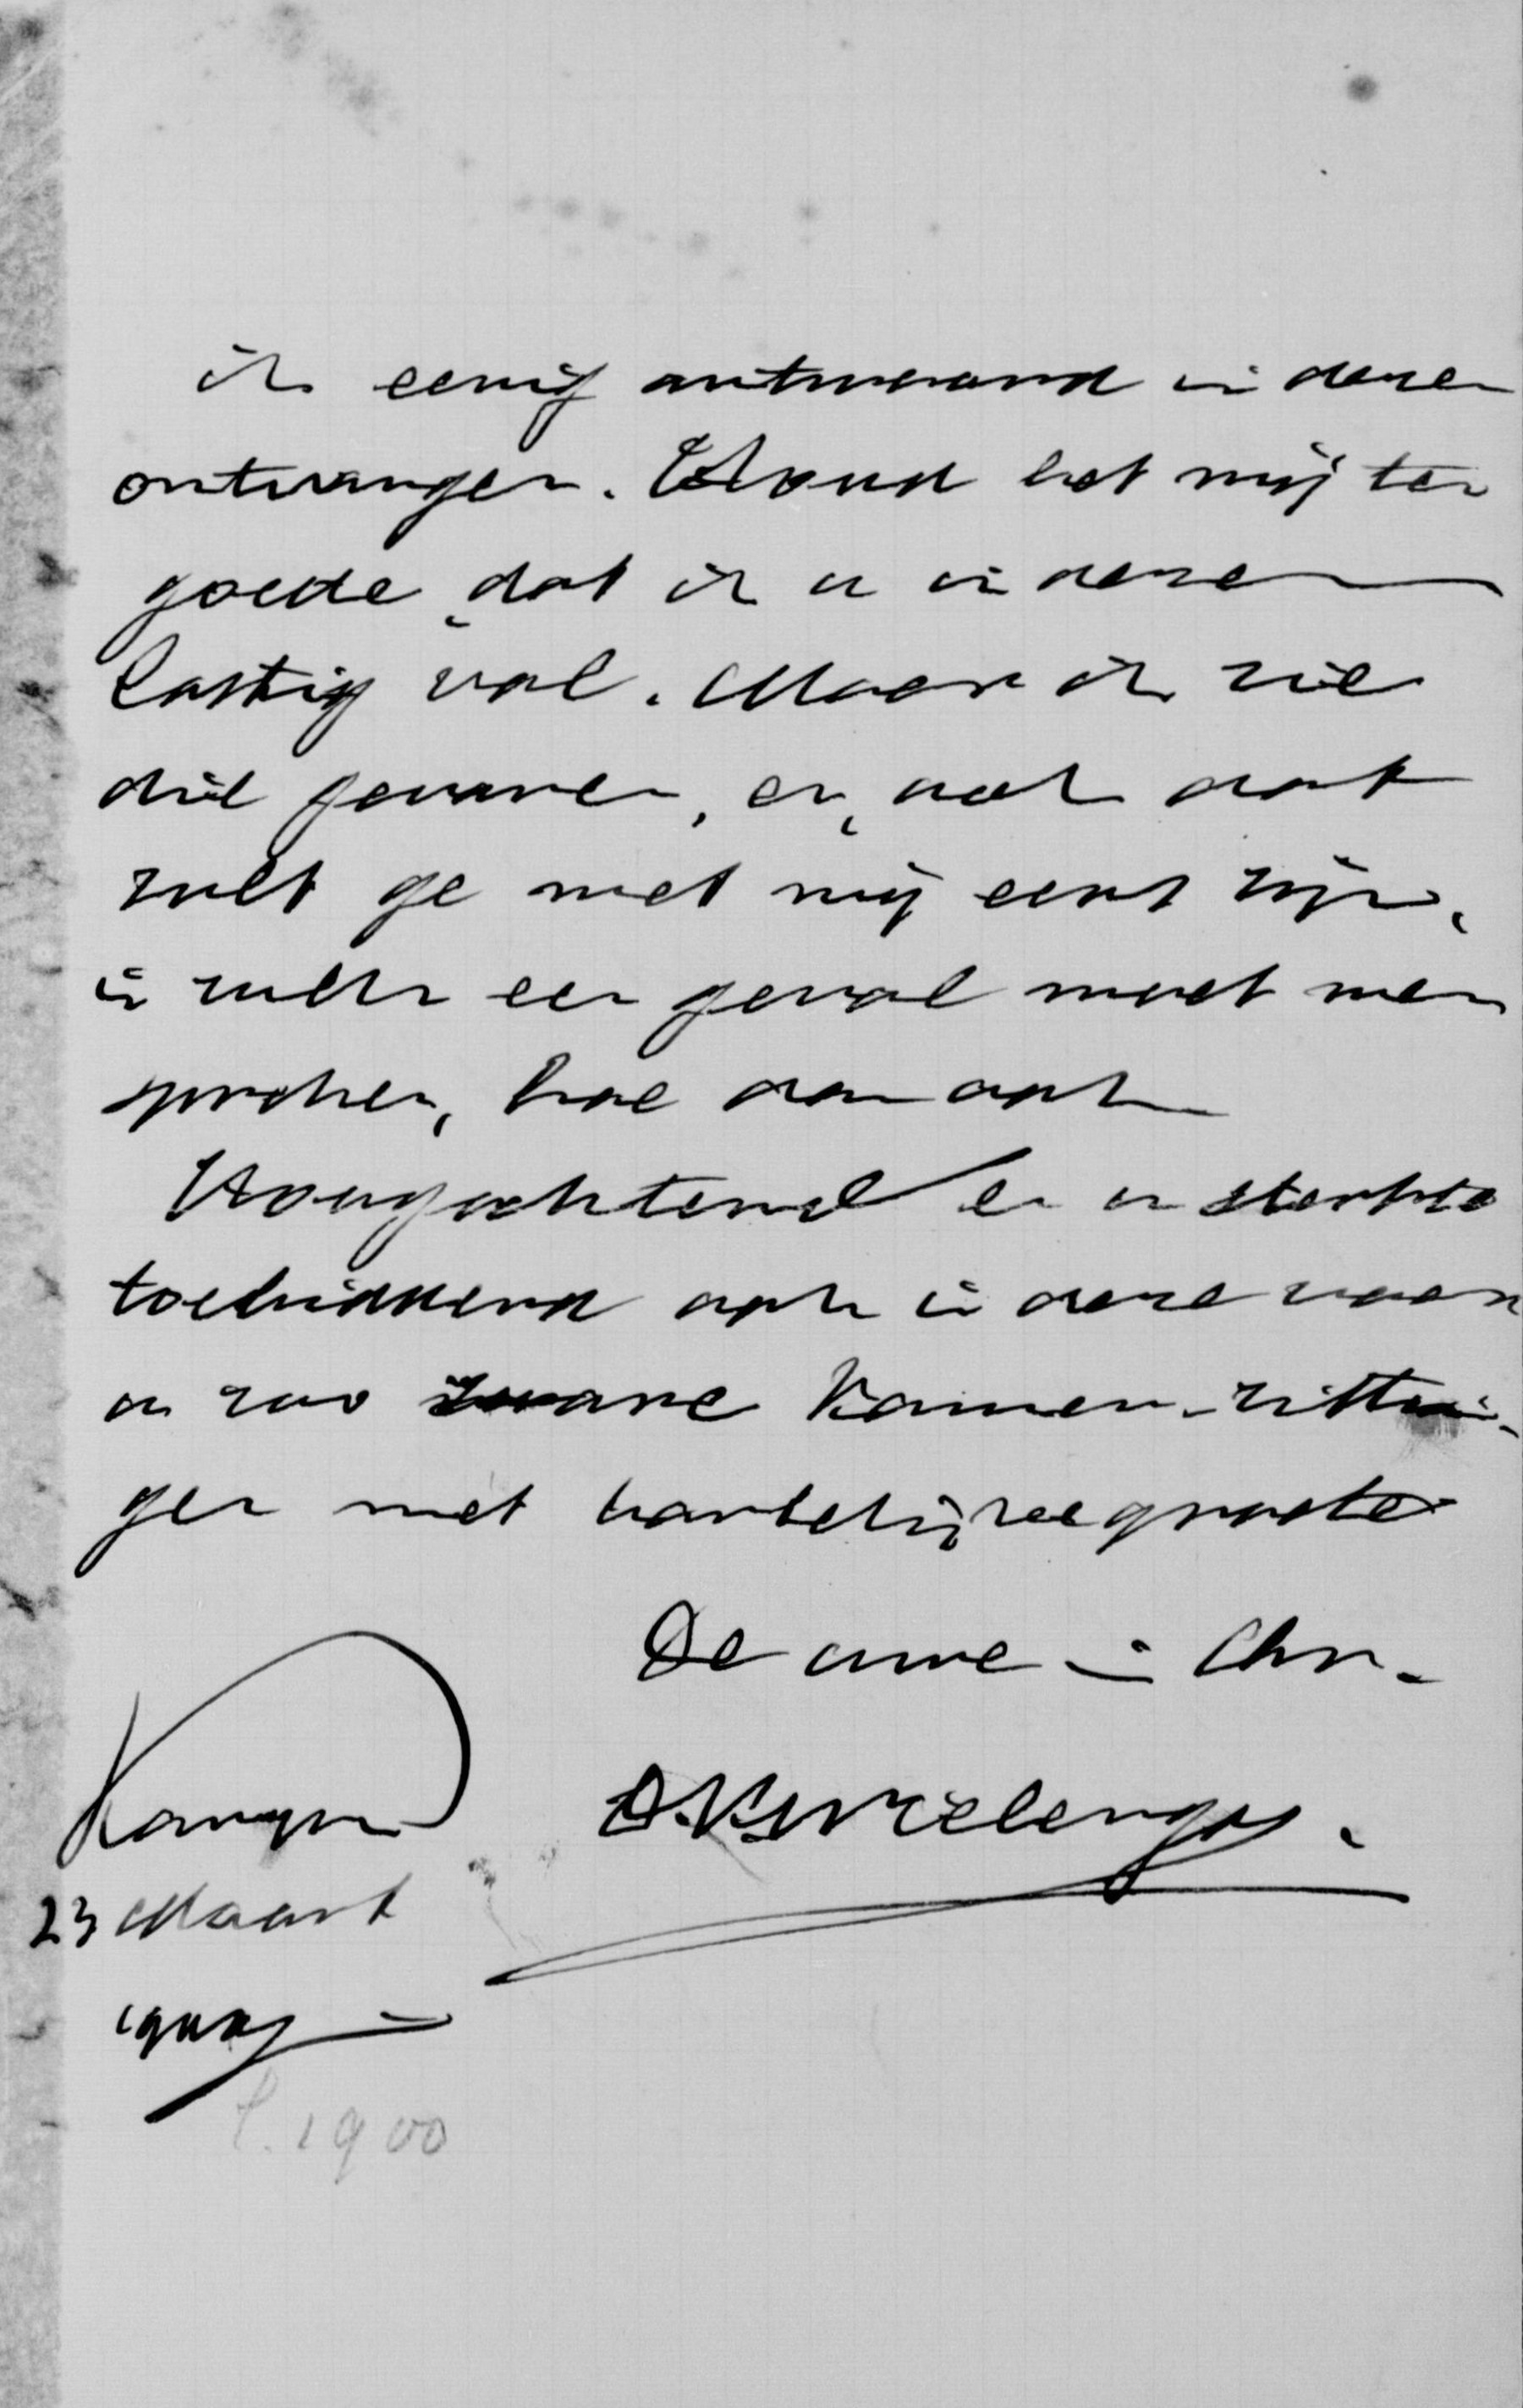 ik eenig antwoord in dezen
ontvangen. Houd het mij ten
goede, dat ik u in dezen
lastig val. Maar ik zie
drie gevaren, en, ook dat
zult ge met mij eens zijn,
in zulk een geval moet men
spreken, hoe dan ook
Hoogachtend en u sterkte
toebiddend ook in deze voor
u zoo zware Kamer-zittin-
gen met hartelijke groete
De uwe in Chr.
Kampen
23 Maart
1900